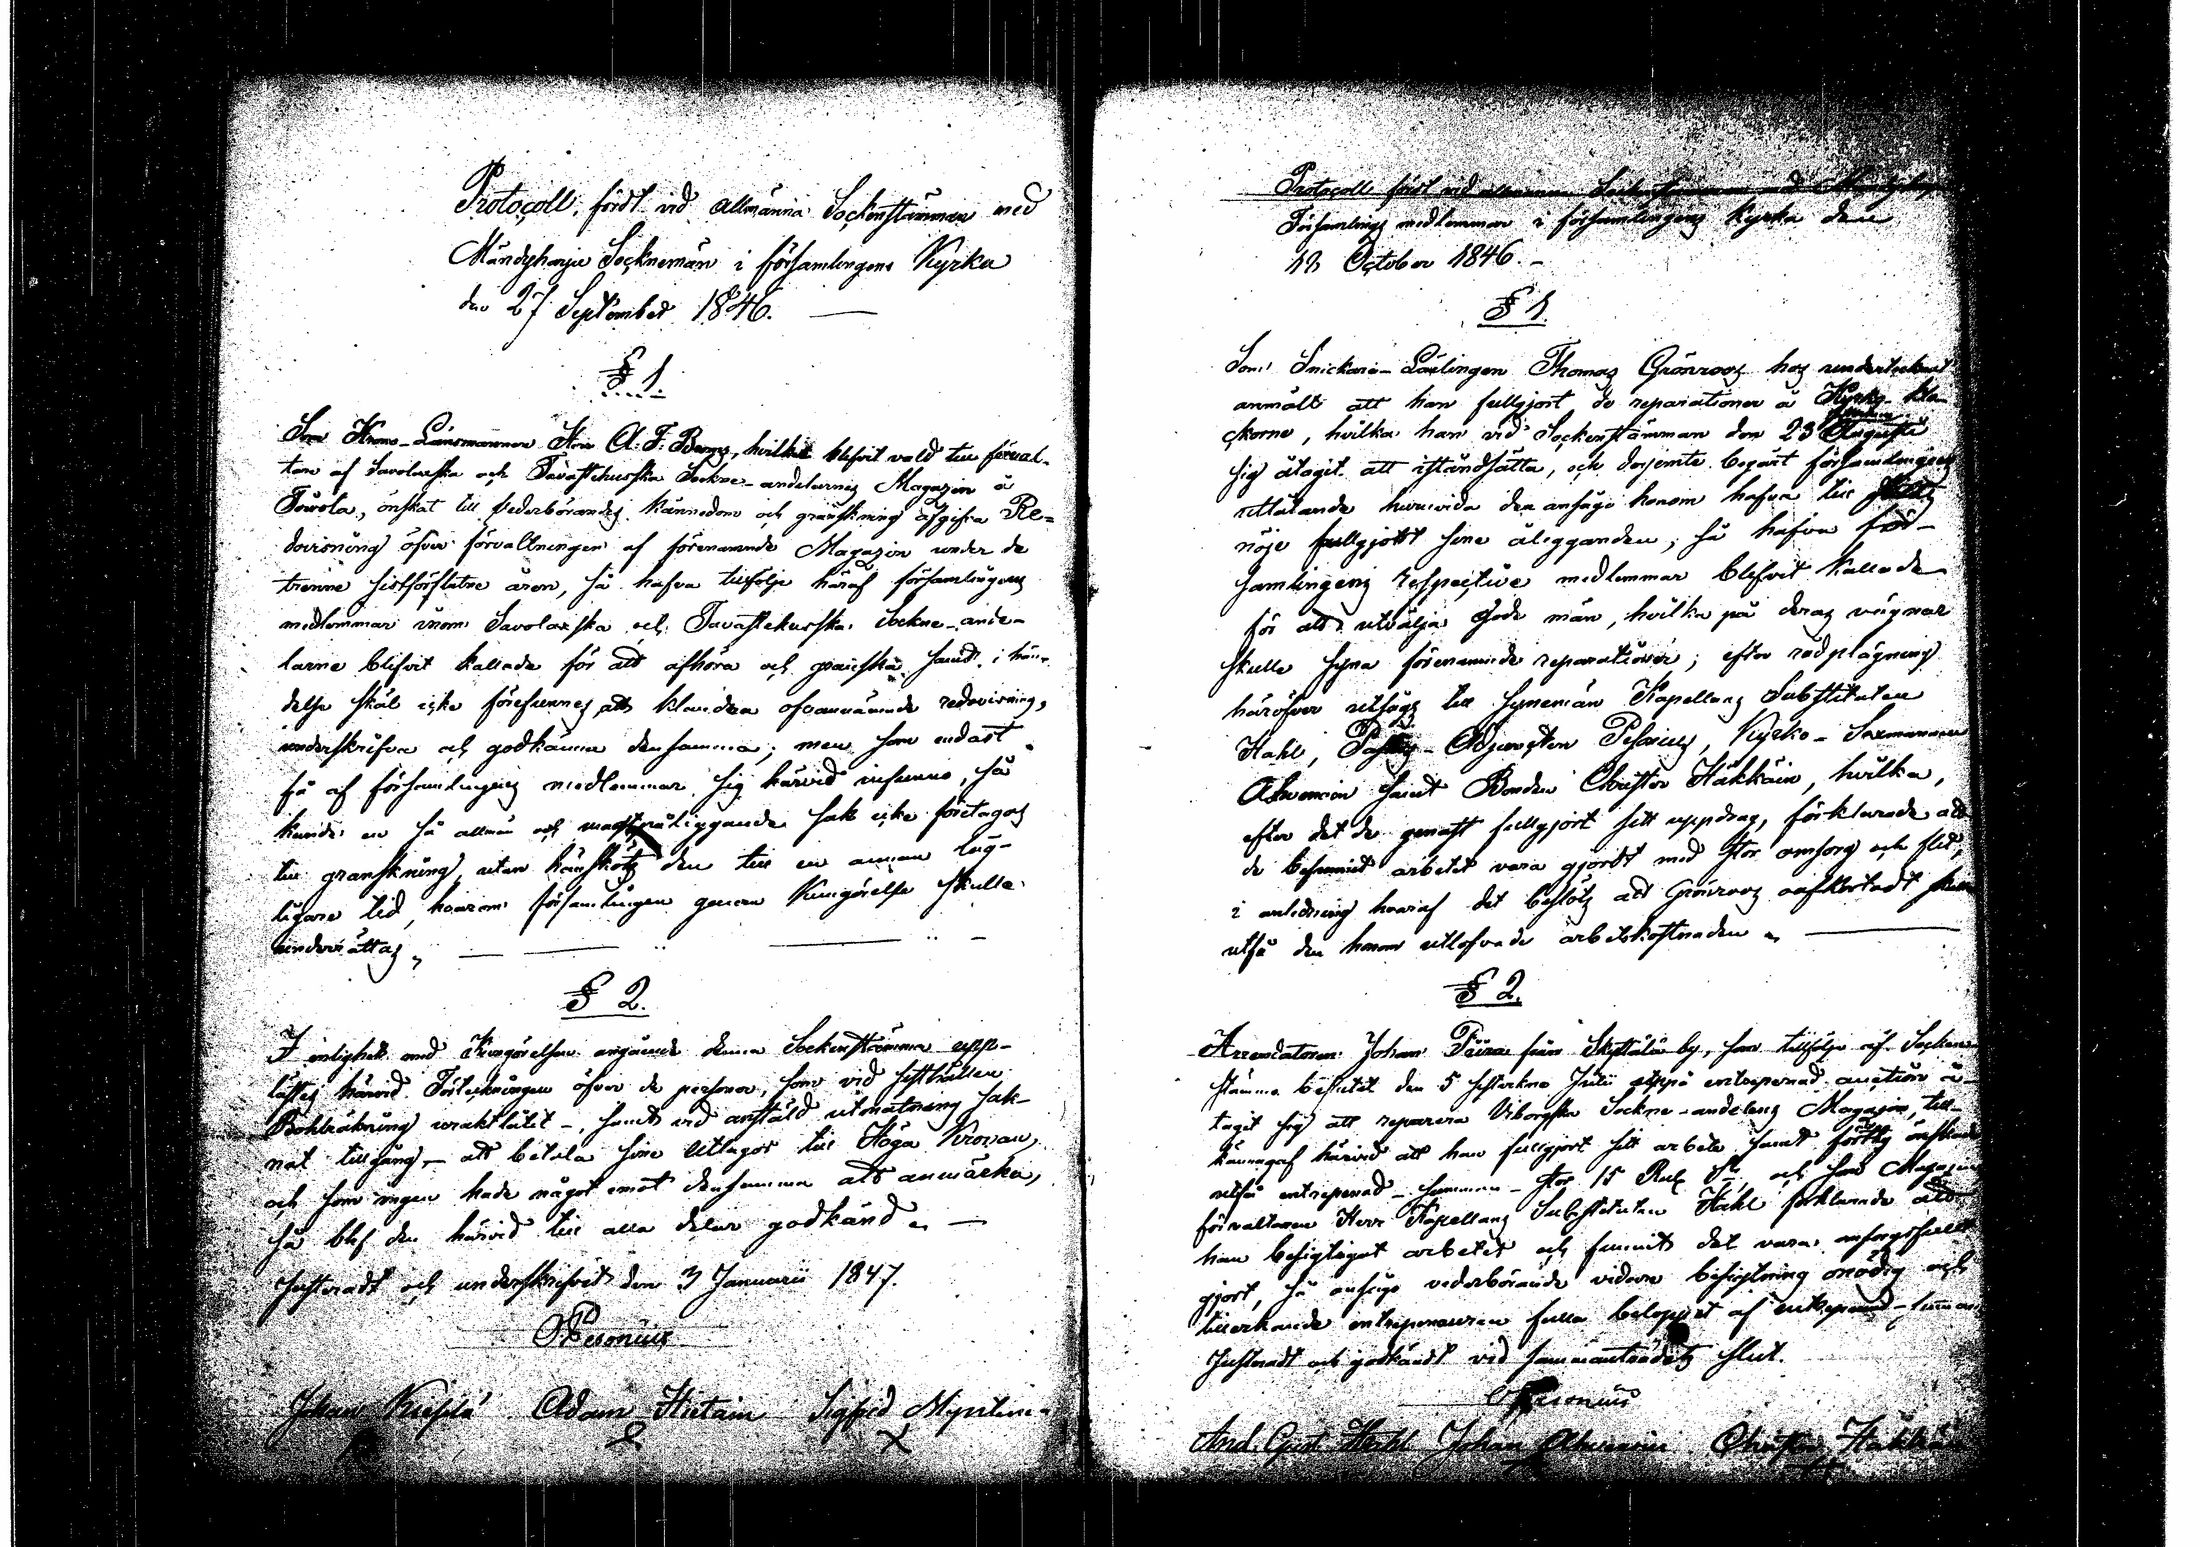 Protocoll, fördt vid allmänna Sockenstämman med
Mändyharju Socknemän i församlingens Kyrka
den 27 September 1846.
§ 1.
Som Krono-Länsmannen Herr A: F: Berg, hvilken blefvit vald till förval-
tare af Savolaxska och Tavastehusska Sockne-andelarnes Magazin å
önskat till vederbörandes kännedom och granskning afgifva Re-
dovisning öfver förvaltningen af förenämnde Magazin under de
trenne sistförflutne åren, så hafva tillfölje häraf församlingens
medlemmar inom Savolaxska och Tavastehusska Sockne-ande-
larne blifvit kallade för att afhöra och granska samt, i hän-
delse skäl icke förefunnes att klandra ofvannämnde redovisning,
underskrifva och godkänna densamma; men som endast
få af församlingens medlemmar sig härvid infunno, så
kunde en så allmän och magtpåliggande sak icke företagas
till granskning, utan hänsköts den till en annan läg-
ligare tid, hvarom församlingen genom Kungörelse skulle
underrättas.
§ 2.
I enlighet med Kungörelsen angående denna Sockenstämma upp-
lästes härvid Förteckningen öfver de personer, som vid sisthållen
Bohlräkning uraktlåtit -, samt vid anstäld utmätning sak-
nat tillgång, - att betala sine Utlagor till Höga Kronan,
och som ingen hade något emot densamma att anmärka,
så blef den härvid till alla delar godkänd.
Justeradt och underskrifvit den 3 Januarii 1847.
Pesonius
Johan Adam Hietain Sigfrid
Protocoll fördt vid allmänna Sockenstämman med Mändyharju
Församlings medlemmar i församlingens Kyrka den
18 October 1846. -
§ 1.
Som Snickare-Lärlingen Thomas Grönroos hos undertecknat
anmält att han fullgjort de reparationer å Kyrko-kla-
ckorne, hvilka han vid Sockenstämman den 23 Augusti
sig åtagit att iståndsätta, och derjemte begärt församlingens
utlåtande huruvida den ansåge honom hafva till
nöje fullgjort sine åligganden; så hafva för-
samlingens respective medlemmar blefvit kallade
för att utvälja Gode män, hvilka på deras vägnar
skulle syna förenämnde reparationer; efter rådplägning
häröfver utsågs till synemän Kapellans Substituten
Hahl, Pastors-Adjuncten Pesonius, Kyrko-Sexmannen
Ahvenain samt Bonden Christer Häkkäin, hvilka,
efter det de genast fullgjort sitt uppdrag, förklarade att
de befunnit arbetet vara gjordt med stor omsorg och flit,
i anledning hvaraf det beslöts att Grönroos oafkortadt skulle
utfå den honom utlofvade arbetskostnaden.
§ 2.
Arrendatoren Johan från by, som tillfölje af Socken-
stämma beslutet den 5 sistvekne Julii uppå entreprenad-auction å-
tagit sig att reparera Viborgska Sockne-andelens Magazin, till-
kännagaf härvid att han fullgjort sitt arbete samt önskade
utfå entreprenad-summan - stor 15 Rub. S:r, och som Magazins
förvaltaren Herr Kapellans Substituten Hahl förklarade att
han besigtigat arbetet och funnit det vara omsorgsfullt
gjort, så ansågo vederbörande vidare besigtning onödig och
tillerkände entreprenauren fulla beloppet af entreprenad-summan.
Justeradt och godkändt vid sammanträdets slut.
Pesonius
And. Gust. Hahl Johan Ahvenain Christer Häkkäin